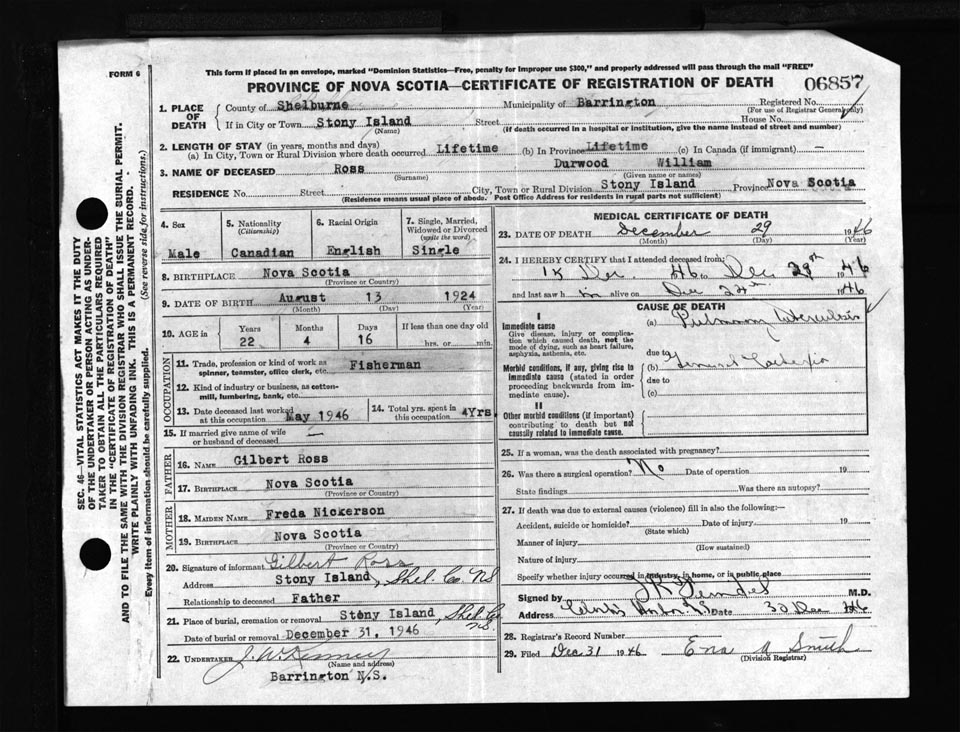 FORM 6
This form if placed in an envelope, marked "Dominion Statistics—Free, penalty for improper use $300," and properly addressed will pass through the mail "FREE"
PROVINCE OF NOVA SCOTIA—CERTIFICATE OF REGISTRATION OF DEATH 06857
1. PLACE OF DEATH County of Shelburne Municipality of Barrington Registered No.
(For use of Registrar General only)
If in City or Town Stony Island Street House No.
(Name) (If death occurred in a hospital or institution, give the name instead of street and number)
2. LENGTH OF STAY (in years, months and days)
(a) In City, Town or Rural Division where death occurred Lifetime (b) In Province Lifetime (c) In Canada (if immigrant) —
3. NAME OF DECEASED Ross Durwood William
(Surname) (Given name or names)
RESIDENCE No. Street City, Town or Rural Division Stony Island Province Nova Scotia
(Residence means usual place of abode. Post Office Address for residents in rural parts not sufficient)
4. Sex 5. Nationality (Citizenship) 6. Racial Origin 7. Single, Married, Widowed or Divorced (write the word)
Male Canadian English Single
8. BIRTHPLACE Nova Scotia
(Province or Country)
9. DATE OF BIRTH August 13 1924
(Month) (Day) (Year)
10. AGE in Years Months Days If less than one day old
22 4 16 hrs. or min.
OCCUPATION
11. Trade, profession or kind of work as spinner, teamster, office clerk, etc. Fisherman
12. Kind of industry or business, as cotton-mill, lumbering, bank, etc.
13. Date deceased last worked at this occupation May 1946 14. Total yrs. spent in this occupation 4Yrs.
15. If married give name of wife or husband of deceased —
FATHER
16. NAME Gilbert Ross
17. BIRTHPLACE Nova Scotia
(Province or Country)
MOTHER
18. MAIDEN NAME Freda Nickerson
19. BIRTHPLACE Nova Scotia
(Province or Country)
20. Signature of informant Gilbert Ross
Address Stony Island, Shel. Co. NS
Relationship to deceased Father
21. Place of burial, cremation or removal Stony Island, Shel Co. NS.
Date of burial or removal December 31, 1946
22. UNDERTAKER J. W.
(Name and address)
Barrington N.S.
MEDICAL CERTIFICATE OF DEATH
23. DATE OF DEATH December 29 1946
(Month) (Day) (Year)
24. I HEREBY CERTIFY that I attended deceased from:
46 to Dec. 1946
and last saw h im alive on Dec 24th 1946
CAUSE OF DEATH
I
Immediate cause
Give disease, injury or complication which caused death, not the mode of dying, such as heart failure, asphyxia, asthenia, etc.
(a) Pulmonary tuberculosis
due to
Morbid conditions, if any, giving rise to immediate cause (stated in order proceeding backwards from immediate cause).
(b)
due to
(c)
II
Other morbid conditions (if important) contributing to death but not causally related to immediate cause.
25. If a woman, was the death associated with pregnancy?
26. Was there a surgical operation? No Date of operation 19
State findings Was there an autopsy?
27. If death was due to external causes (violence) fill in also the following:—
Accident, suicide or homicide? Date of injury 19
(State which)
Manner of injury
(How sustained)
Nature of injury
Specify whether injury occurred in industry, in home, or in public place
Signed by M.D.
Address N.S. Date 30 Dec 1946
28. Registrar's Record Number
29. Filed Dec 31 1946 Ena A Smith
(Division Registrar)
SEC. 46—VITAL STATISTICS ACT MAKES IT THE DUTY
OF THE UNDERTAKER OR PERSON ACTING AS UNDER-
TAKER TO OBTAIN ALL THE PARTICULARS REQUIRED
IN THE "CERTIFICATE OF REGISTRATION OF DEATH"
AND TO FILE THE SAME WITH THE DIVISION REGISTRAR WHO SHALL ISSUE THE BURIAL PERMIT.
WRITE PLAINLY WITH UNFADING INK. THIS IS A PERMANENT RECORD.
Every item of information should be carefully supplied. (See reverse side for instructions.)